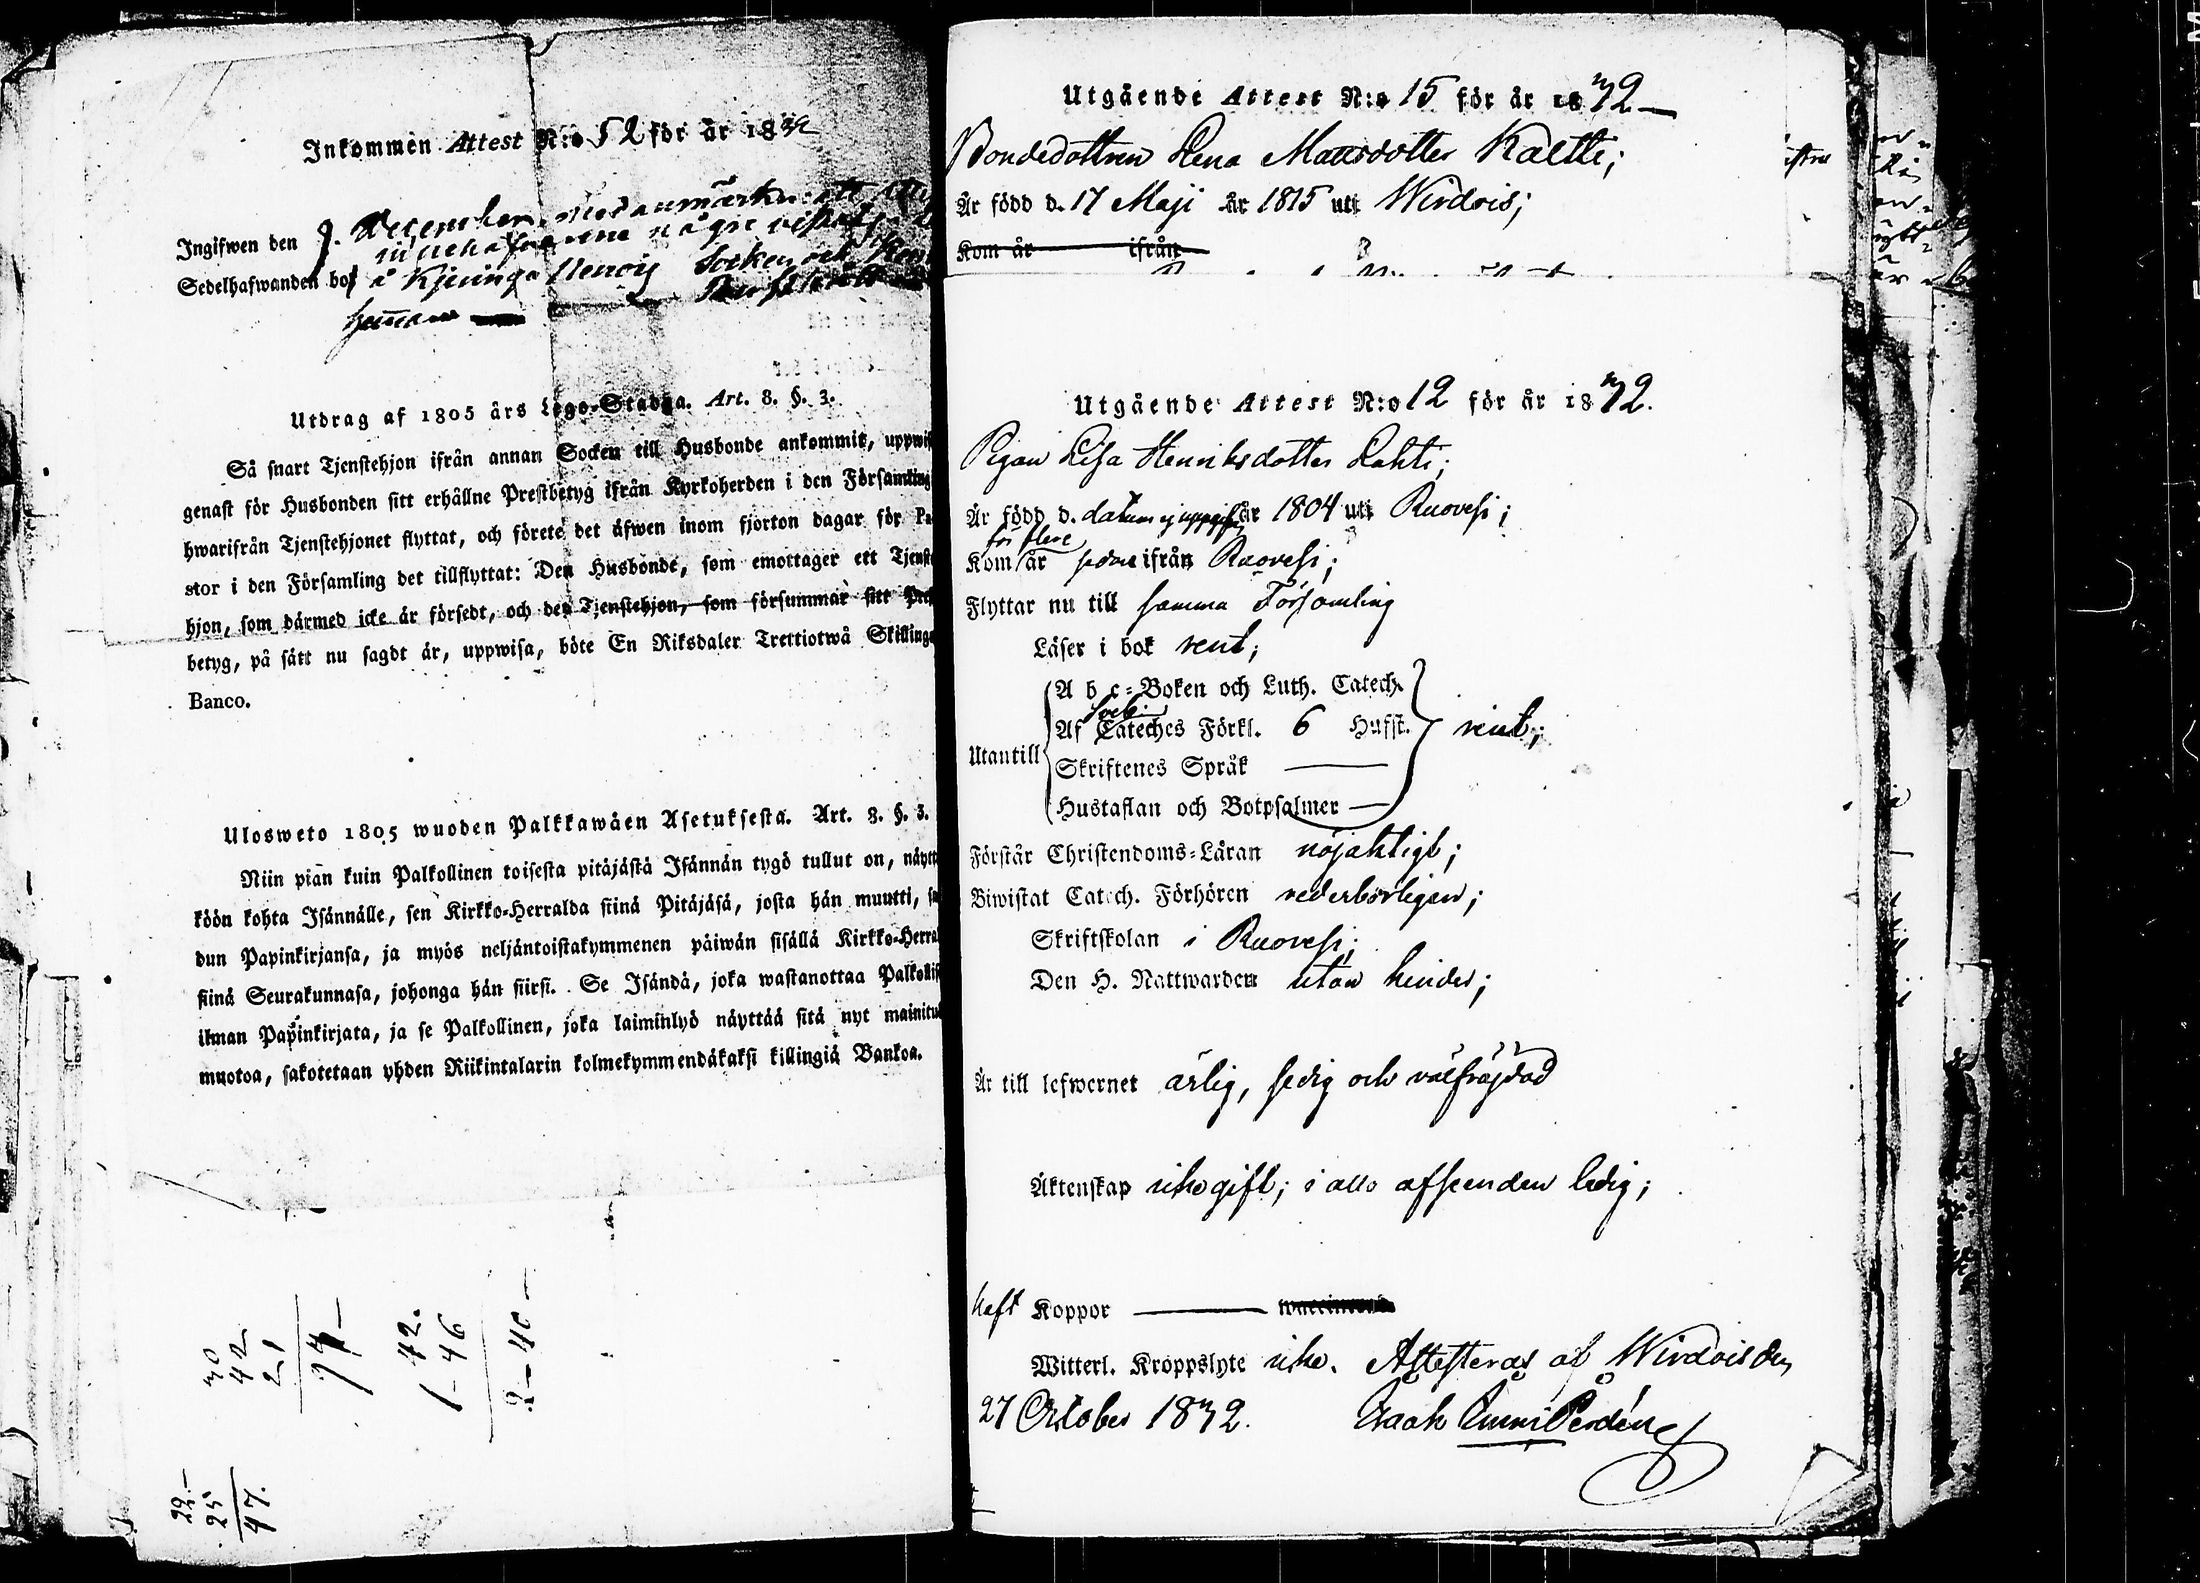 Inkommen Attest N:o 52 för år 1832
Ingifwen den 9. December, med anmärkn: att
innehafvarinne någre
Sedelhafwanden bor å Kjeninge Socken och
hemman
Utdrag af 1805 års Lego-Stadga. Art. 8. §. 3.
Så snart Tjenstehjon ifrån annan Socken till Husbonde ankommit, uppwis
genast för Husbonden sitt erhållne Prestbetyg ifrån Kyrkoherden i den Församling
hwarifrån Tjenstehjonet flyttat, och förete det äfwen inom fjorton dagar för Pa
stor i den Församling det tillflyttat: Den Husbonde, som emottager ett Tjenste
hjon, som därmed icke är försedt, och det Tjenstehjon, som försummar sitt Prest
betyg, på sätt nu sagdt är, uppwisa, böte En Riksdaler Trettiotwå Skillingar
Banco.
Ulosweto 1805 wuoden Palkkawäen Asetuksesta. Art. 8. §. 3.
Niin pian kuin Palkollinen toisesta pitäjästä Isännän tygö tullut on, näytt
köön kohta Isännälle, sen Kirkko-Herralda siinä Pitäjäsä, josta hän muutti, sa
dun Papinkirjansa, ja myös neljäntoistakymmenen päiwän sisällä Kirkko-Herra
siinä Seurakunnasa, johonga hän siirsi. Se Isändä, joka wastanottaa Palkollis
ilman Papinkirjata, ja se Palkollinen, joka laiminlyö näyttää sitä nyt mainitu
muotoa, sakotetaan yhden Riikintalarin kolmekymmendäkaksi killingiä Bankoa.
30
42
21
74–
42.
1–46
2–40–
22.–
25
47.
Utgående Attest N:o 15 för år 1832
Bondedottren Lena Mattsdotter Kaltti;
Är född d. 17 Maji år 1815 uti Wirdois;
Kom år ifrån
Utgående Attest N:o 12 för år 1832.
Pigan Lisa Henriksdotter Lahti;
Är född d. datum ej uppgifvit år 1804 uti Ruovesi;
för flere
Kom år sedan ifrån Ruovesi;
Flyttar nu till samma Församling
Läser i bok rent;
A b c-Boken och Luth. Catech.
Sveb:
Af Cateches Förkl. 6 Hufst. rent;
Utantill
Skriftenes Språk
Hustaflan och Botpsalmer
Förstår Christendoms-Läran nöjaktigt;
Biwistat Catech. Förhören vederbörligen;
Skriftskolan i Ruovesi;
Den H. Nattwarden utan hinder;
Är till lefwernet ärlig, sedig och välfräjdad
Äktenskap icke gift; i allo afseenden ledig;
haft Koppor
Witterl. Kroppslyte icke. Attesteras af Wirdois den
27 October 1832.